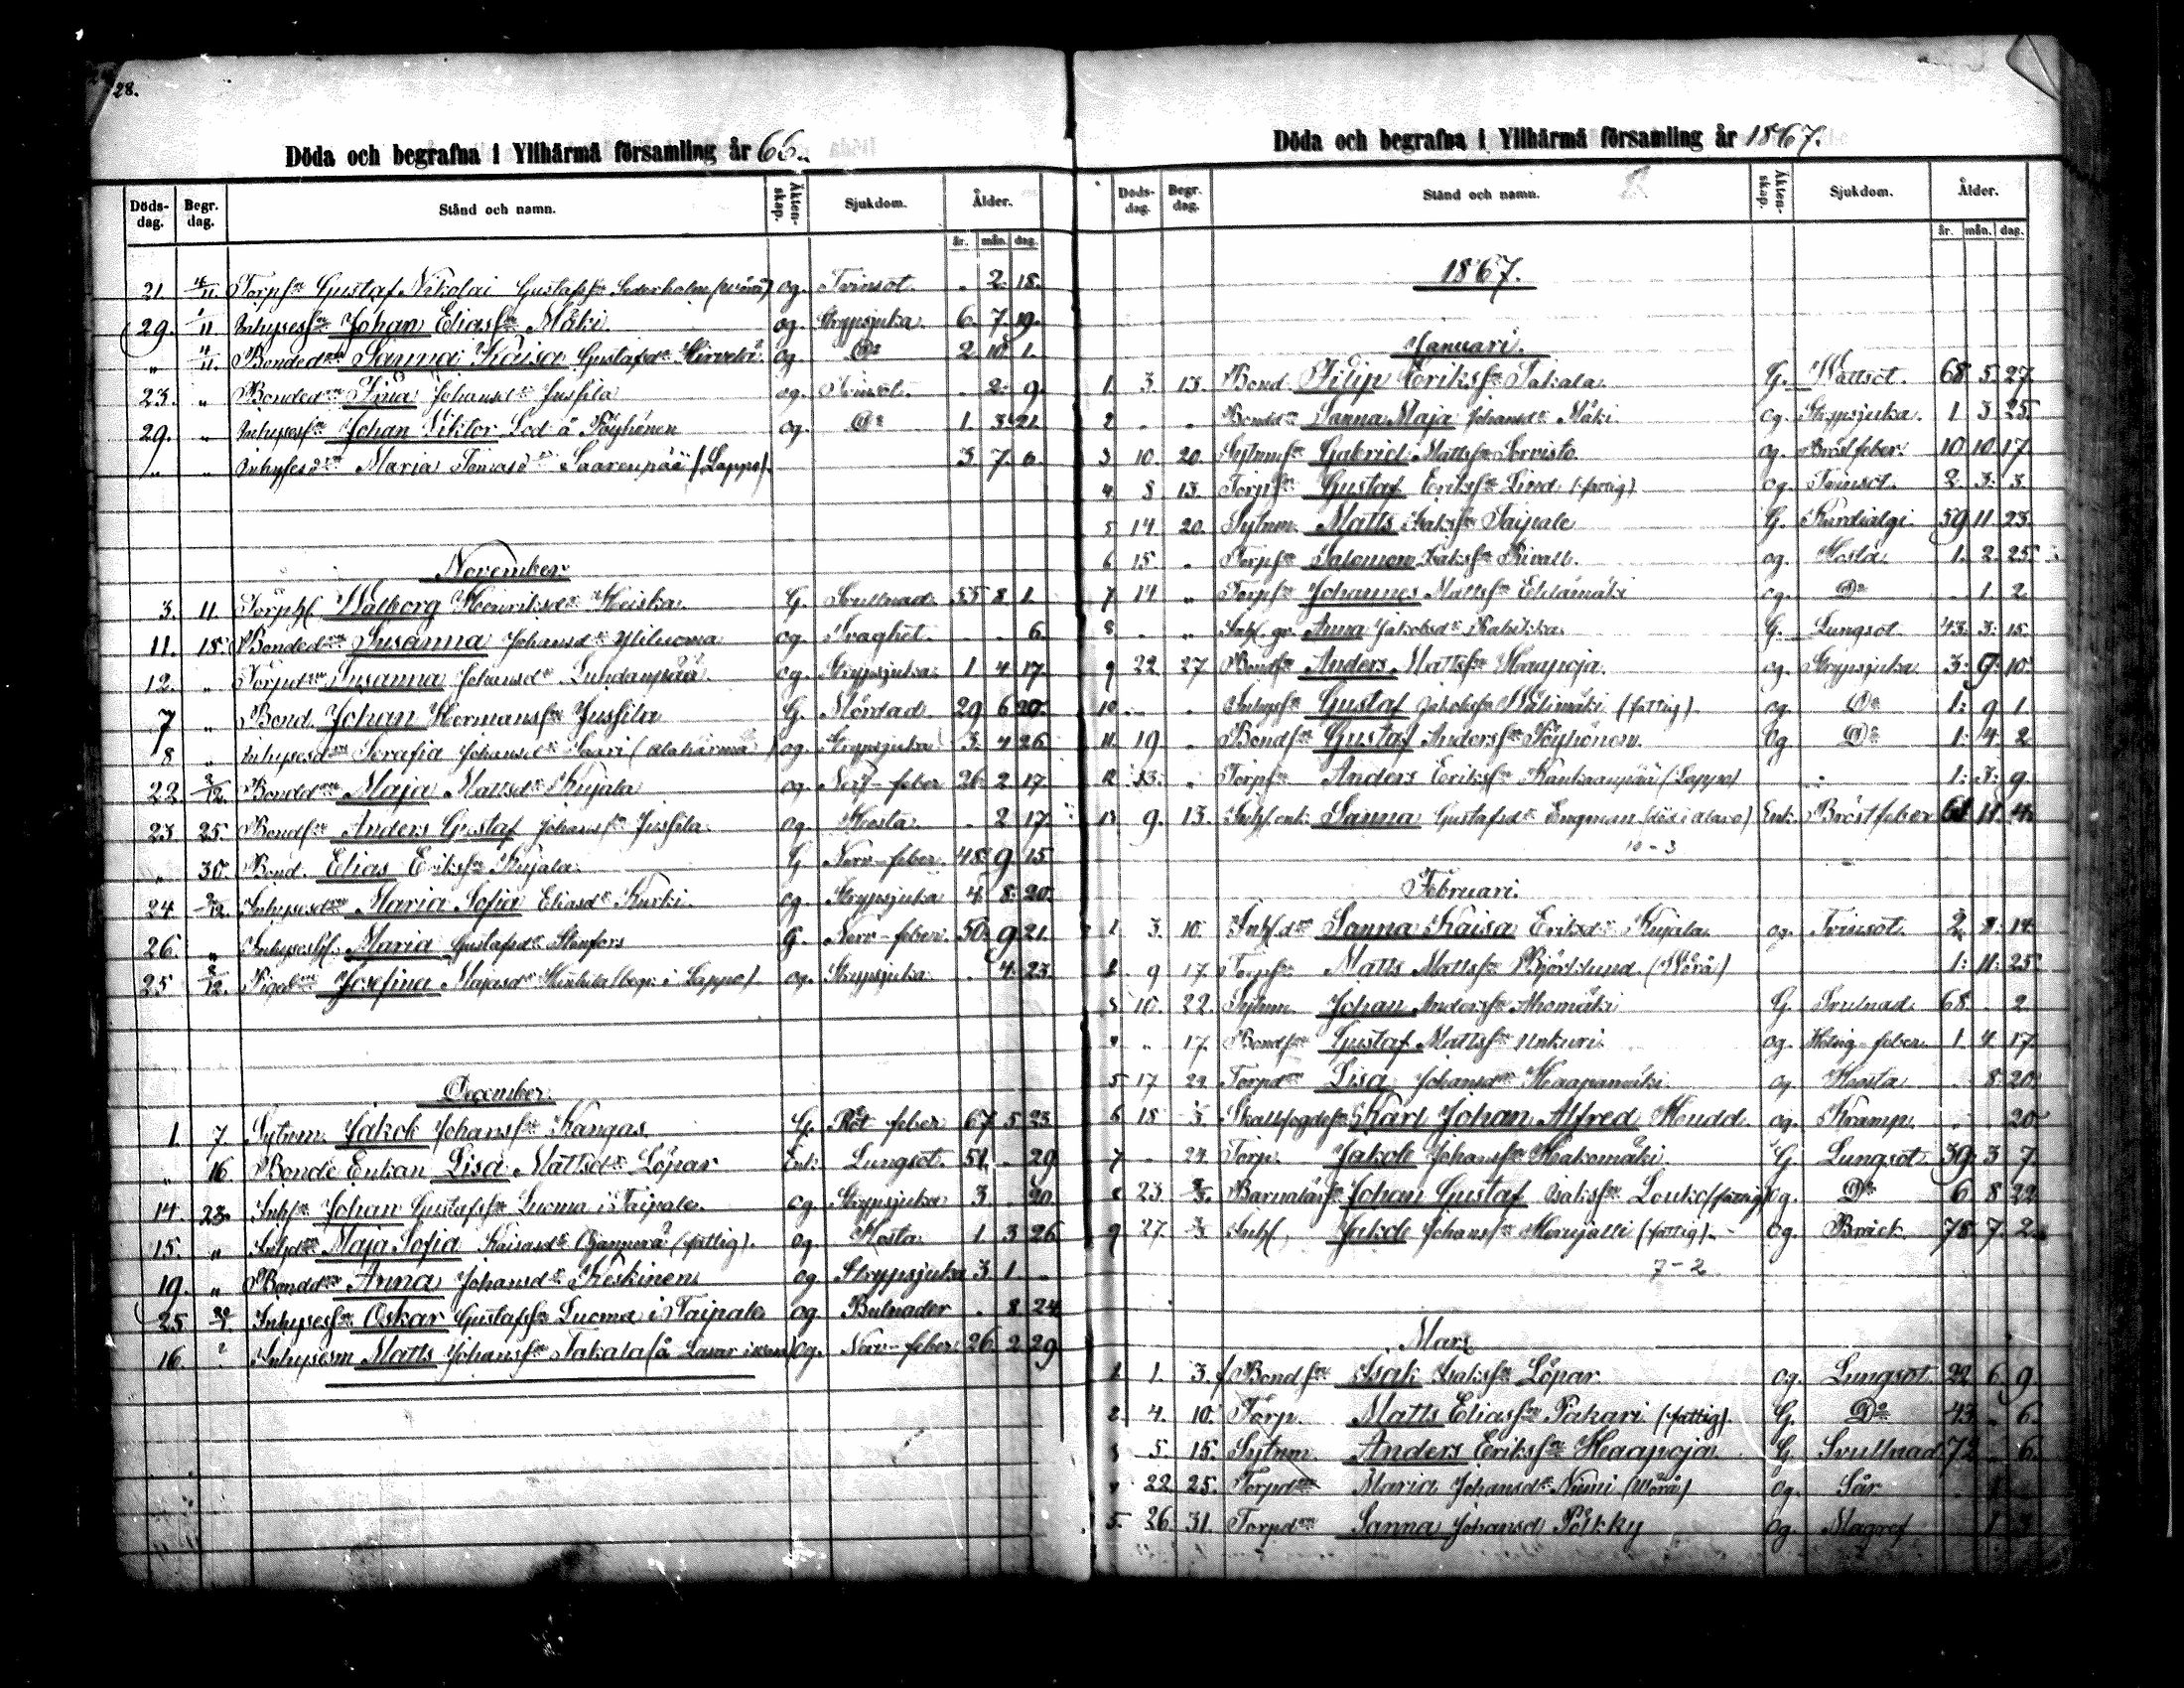 28.
Döda och begrafna i Ylihärmä församling år 66.
Döds-dag. Begr. dag. Stånd och namn. Äkten-skap. Sjukdom. Ålder.
år. mån. dag.
21. Torpsn Gustaf Nikolai Gustafssn Sederholm og. Tvinsot. . 2. 18.
29. 1/11 Inhysessn Johan Eliassn Mäki. og. Strypsjuka. 6. 7. 19.
„ 4/11. Bondedn Sanna Kaisa Gustafsdr og. Do 2 10 1.
23. „ Bondedn Fina Johansdr Jussila og. Tvinsot. . 2. 9.
29. „ Inhysessn Johan Viktor Höyhönen og Do 1. 3. 21.
„ „ Inhysesdn Maria Tomasdr Saarenpää (Lappo). 3. 7. 6.
November.
3. 11. Torph. Walborg Henriksdr Heiska. G. Svullnad. 55 8 1.
11. 18. Bondedn Susanna Johansdr Yliluoma og. Svaghet. . . 6.
12. „ Torpdn Susanna Johansdr og. Strypsjuka. 1 4. 17.
7 „ Bond. Johan Hermanssn Jussila G. Mördad. 29 6 20.
8 „ Inhysesdn Serafia Johansdr Saari (Alahärmä) og. Strypsjuka 3. 4 26
22 2/12. Bondedn Maja Mattsdr Kujala og. Nerf-feber 26. 2 17.
23. 25. Bondsn Anders Gustaf Johanssn Jussila. og. Hosta. . 2 17.
„ 30. Bond. Elias Erikssn Kujala. G Nerv-feber. 48. 9 15
24. 2/12. Inhysesdn Maria Sofia Eliasdr Kurki. og. Strypsjuka 4. 8. 20.
26. „ Inhyseshl. Maria Gustafsdr Stenfors G. Nerv-feber. 50. 9 21.
25 2/12. Pigadn Josefina Majasdr begr. i Lappo) og. Strypsjuka. . 4. 23.
December.
1. 7. Sytnm. Jakob Johanssn Kangas. G. Röt feber 67 5 23
„ 16. Bonde Enkan Lisa Mattsdr Löpar Enk. Lungsot. 51. . 29
14. 23. Inhsn Johan Gustafssn Luoma i Taipale. og. Strypsjuka 3. . 20.
15. „ Inhdn Maja Sofia Kaisasdr (fattig). og. Hosta. 1. 3 26
19. „ Bonddn Anna Johansdr Keskinen og. Strypsjuka 3 1 „
25. Inhysessn Oskar Gustafssn Luoma i Taipale og. Bulnader . 8. 24
16. ? Inhysesm Matts Johanssn Takala og. Nerv-feber 26 2 29
Döda och begrafna i Ylihärmä församling år 1867.
Döds-dag. Begr. dag. Stånd och namn. Äkten-skap. Sjukdom. Ålder.
år. mån. dag.
1867.
Januari.
1. 3. 13. Bond. Filip Erikssn Takala. G. Wattsot. 68 5. 27.
2 „ „ Bonddn Sanna Maja Johansdr Mäki. og. Strypsjuka. 1 3 25.
3 10. 20. Sytnmsn Gabriel Mattssn Sorvisto. og. Bröst feber. 10 10. 17.
4. 8 13. Torpsn Gustaf Erikssn Lind (fattig) og. Tvinsot. 2. 3. 3.
5 14. 20. Sytnm. Matts Isakssn Taipale G. Kardialgi. 59 11. 23.
6 15. „ Torpsn Salomon Isakssn og. Hosta. 1. 2. 25
7 14 „ Torpsn Johannes Mattssn og. Do . 1. 2.
8 „ „ Inh. Anna Jakobsdr G. Lungsot. 43. 3. 15.
9 22 27. Bondsn Anders Mattssn Haapoja. og. Strypsjuka 3. 9. 10
10 „ „ Inhyssn Gustaf Jakobssn Wälimäki (fattig) og. Do 1. 9 1.
11. 19 „ Bondsn Gustaf Anderssn Höyhönen. og Do 1. 4. 2
12 13. „ Torpsn Anders Erikssn Kankaanpää (Lappo) 1. 3. 9.
13. 9. 13. Inh. enk. Sanna Gustafsdr Engman (död i Alavo) Enk. Bröstfeber 61 11. 4.
10-3
Februari.
1. 3. 10. Inhdn Sanna Kaisa Eriksdr Kujala. og. Tvinsot. 2. 8. 14.
2 9 17. Torpsn Matts Mattssn Björklund. (Wörå) 1. 11. 25.
3 10. 22. Sytnm. Johan Anderssn Ahomäki G. Svulnad. 68. . 2
„ „ 17. Bondsn Gustaf Mattssn Unkuri. og. feber 1. 4. 17.
5 17 24. Torpdn Lisa Johansdr Haapamäki og. Hosta . 8 20.
6 18 3. Skallfogdesn Karl Johan Alfred Hendd. og. Kramp. . . 20
7 „ 24. Torp. Jakob Johanssn Hakomäki. G. Lungsot. 39. 3 7.
8 23. 3/3. Johan Gustaf Isakssn Louko (fattig) og. Do 6 8 22
9 27. 3/3. Inh. Jakob Johanssn (fattig). og Bråck. 78. 7. 2
7-2
Mars
1. 1. 3. Bondsn Isak Isakssn Löpar. og. Lungsot 22 6 9
2. 4. 10. Torp. Matts Eliassn Pakari (fattig). G. Do 43. „ 6.
3 5. 15. Sytnm. Anders Erikssn Haapoja. G. Svullnad 72 . 6.
„ 22 25. Torpdn Maria Johansdr Niemi (Wörå) og. Sår . 1
5. 26. 31. Torpdn Sanna Johansd Pölkky og. Magref . 1 3